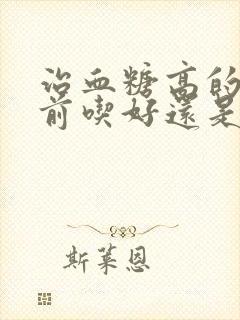 治血糖高的
前喫好還是
斯萊恩